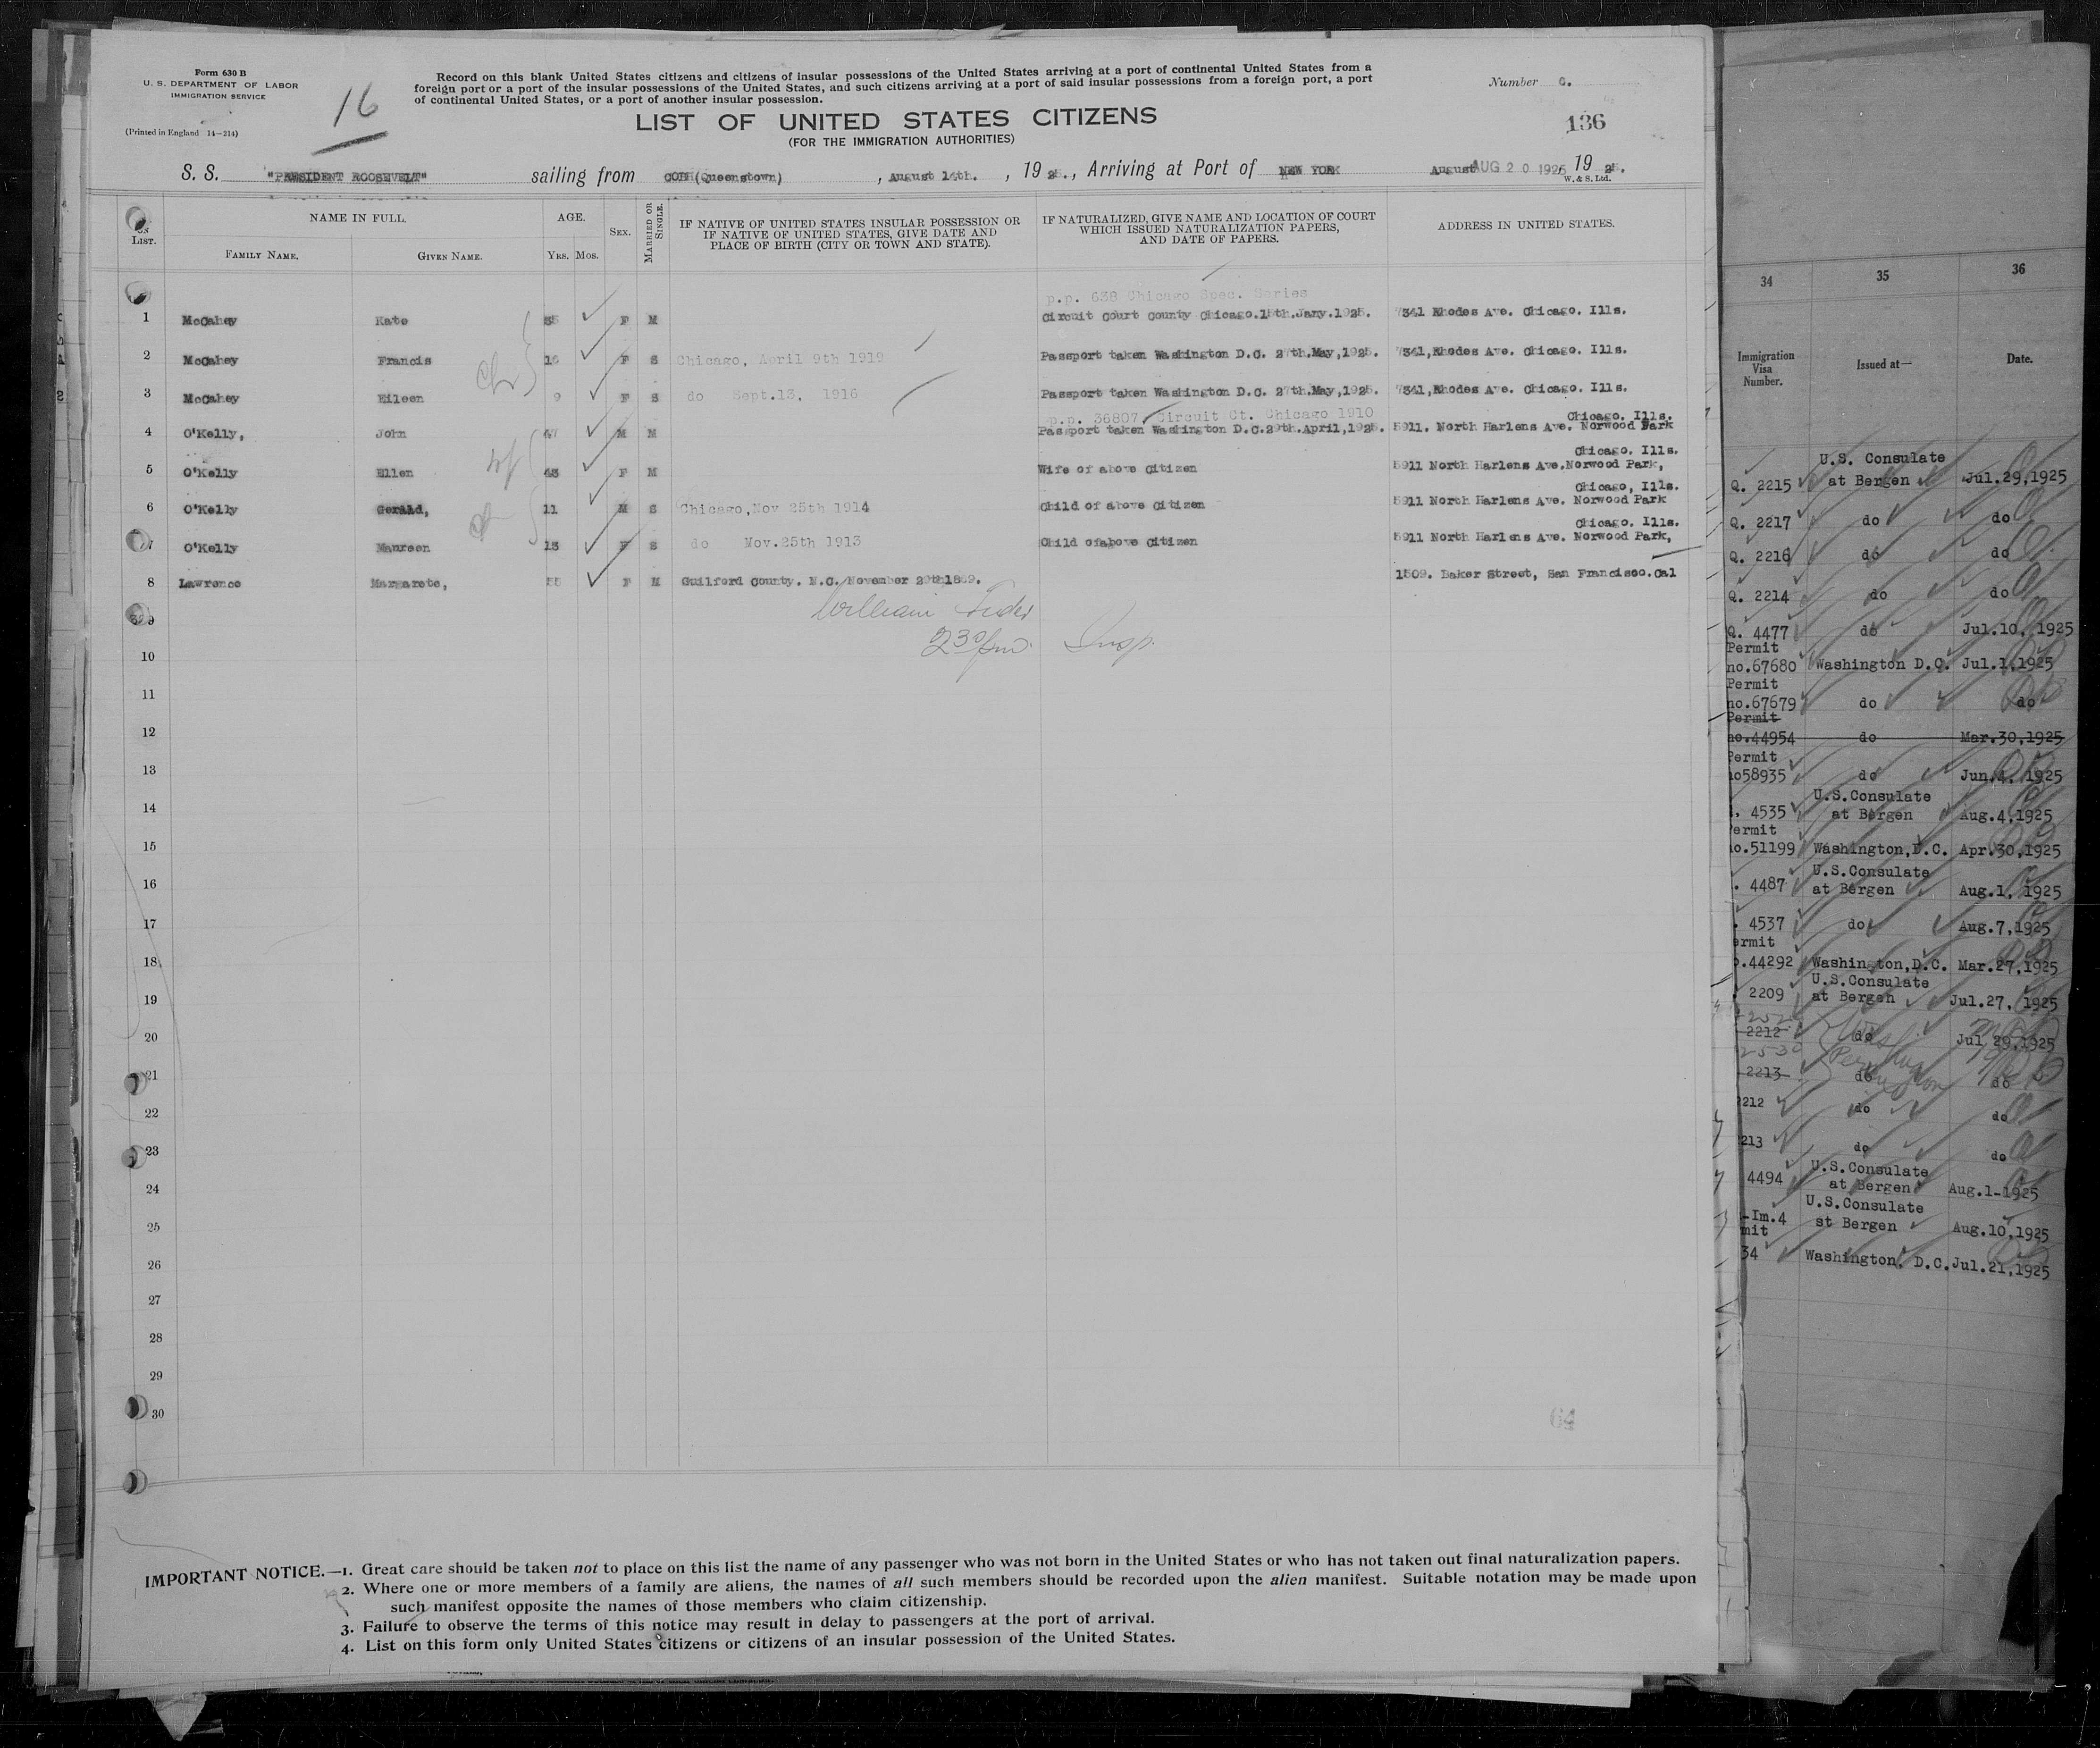 Form 630 B
U. S. DEPARTMENT OF LABOR
IMMIGRATION SERVICE
(Printed in England 14—214)
16
Record on this blank United States citizens and citizens of insular possessions of the United States arriving at a port of continental United States from a
foreign port or a port of the insular possessions of the United States, and such citizens arriving at a port of said insular possessions from a foreign port, a port
of continental United States, or a port of another insular possession.
Number
136
LIST OF UNITED STATES CITIZENS
(FOR THE IMMIGRATION AUTHORITIES)
S. S. "PRESIDENT ROOSEVELT" sailing from COBH (Queenstown), August 14th. , 19 25., Arriving at Port of NEW YORK August AUG 20 1925 19 25.
W. & S. Ltd.
LIST.
NAME IN FULL.
FAMILY NAME.
GIVEN NAME.
AGE.
YRS. MOS.
SEX.
MARRIED OR SINGLE.
IF NATIVE OF UNITED STATES INSULAR POSSESSION OR
IF NATIVE OF UNITED STATES, GIVE DATE AND
PLACE OF BIRTH (CITY OR TOWN AND STATE).
IF NATURALIZED, GIVE NAME AND LOCATION OF COURT
WHICH ISSUED NATURALIZATION PAPERS,
AND DATE OF PAPERS.
ADDRESS IN UNITED STATES.
p.p. 638 Chicago Spec. Series
1 McCahey Kate 35 F M Circuit Court County Chicago.15th.Jany.1925. 7341 Rhodes Ave. Chicago. Ills.
2 McCahey Francis 10 F S Chicago, April 9th 1919 Passport taken Washington D.C. 27th.May,1925. 7341,Rhodes Ave. Chicago. Ills.
3 McCahey Eileen 9 F S do Sept.13, 1916 Passport taken Washington D.C. 27th.May,1925. 7341,Rhodes Ave. Chicago. Ills.
ch
p.p. 36807 Circuit Ct. Chicago 1910 Chicago. Ills.
4 O'Kelly, John 47 M M Passport taken Washington D.C.29th.April,1925. 5911. North Harlens Ave. Norwood Park
Chicago. Ills.
5 O'Kelly Ellen 43 F M Wife of above Citizen 5911 North Harlens Ave.Norwood Park,
wf
Chicago, Ills.
6 O'Kelly Gerald, 11 M S Chicago,Nov 25th 1914 Child of above Citizen 5911 North Harlens Ave. Norwood Park
ch
Chicago. Ills.
7 O'Kelly Maureen 13 F S do Nov.25th 1913 Child ofabove Citizen 5911 North Harlens Ave. Norwood Park,
8 Lawrence Margarete, 55 F M Guilford County. N.C. November 29th1869. 1509. Baker Street, San Francisco.Cal
9
William
230pm. Insp.
10
11
12
13
14
15
16
17
18
19
20
21
22
23
24
25
26
27
28
29
30
64
IMPORTANT NOTICE.—1. Great care should be taken not to place on this list the name of any passenger who was not born in the United States or who has not taken out final naturalization papers.
2. Where one or more members of a family are aliens, the names of all such members should be recorded upon the alien manifest. Suitable notation may be made upon
such manifest opposite the names of those members who claim citizenship.
3. Failure to observe the terms of this notice may result in delay to passengers at the port of arrival.
4. List on this form only United States citizens or citizens of an insular possession of the United States.
34 35 36
Immigration Visa Number. Issued at— Date.
U.S. Consulate
Q. 2215 at Bergen Jul.29,1925
Q. 2217 do do
Q. 2216 do do
Q. 2214 do do
Q. 4477 do Jul.10, 1925
Permit
no.67680 Washington D.C. Jul.1,1925
Permit
no.67679 do do
Permit
no.44954 do Mar.30,1925
Permit
no58935 do Jun.4, 1925
U.S.Consulate
4535 at Bergen Aug.4,1925
ermit
no.51199 Washington,D.C. Apr.30,1925
U.S.Consulate
4487 at Bergen Aug.1, 1925
4537 do Aug.7,1925
ermit
.44292 Washington,D.C. Mar.27,1925
U.S.Consulate
2209 at Bergen Jul.27, 1925
2212 do Jul 29,1925
2530
2213 do do
212 do do
213 do do
U.S.Consulate
4494 at Bergen Aug.1-1925
U.S.Consulate
-Im.4 st Bergen Aug.10,1925
mit
34 Washington, D.C.Jul.21,1925